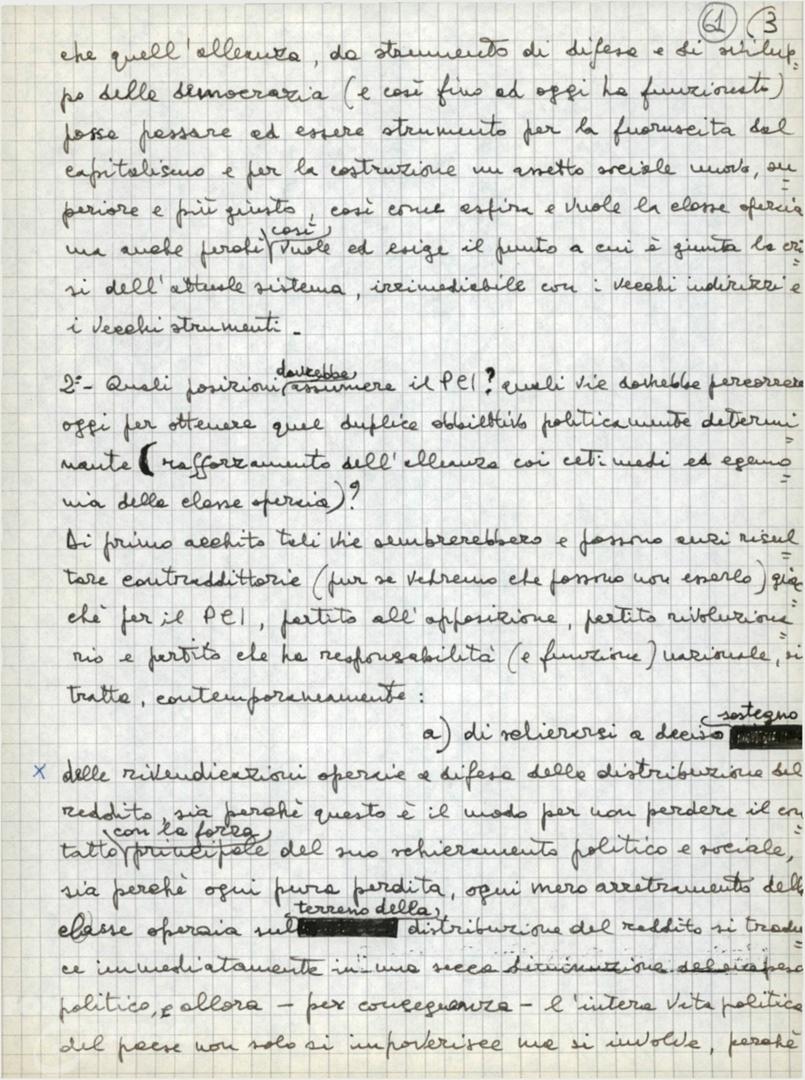 61 3
che quell'alleanza, da strumento di difesa e di svilup=
po della democrazia (e così fino ad oggi ha funzionato)
possa passare ad essere strumento per la fuoruscita dal
capitalismo e per la costruzione un assetto sociale nuovo, su=
periore e più giusto, così come aspira e vuole la classe operaia
così
ma anche perché vuole ed esige il punto a cui è giunta la cri=
si dell'attuale sistema, irrimediabile con i vecchi indirizzi e
i vecchi strumenti.
dovrebbe
2°- Quali posizioni assumere il PCI? quali vie dovrebbe percorrere
oggi per ottenere quel duplice obbiettivo politicamente determi=
nante (rafforzamento dell'alleanza coi ceti medi ed egemo=
nia della classe operaia)?
Di primo acchito tali vie sembrerebbero e possono anzi risul=
tare contraddittorie (pur se vedremo che possono non esserlo) già=
chè per il PCI, partito all'opposizione, partito rivoluziona=
rio e partito che ha responsabilità (e funzione) nazionale, si
tratta, contemporaneamente:
sostegno
a) di schierarsi a deciso
x delle rivendicazioni operaie a difesa della distribuzione del
reddito, sia perchè questo è il modo per non perdere il con=
con la forza
tatto principale del suo schieramento politico e sociale,
sia perchè ogni pura perdita, ogni mero arretramento della
terreno della
classe operaia sul distribuzione del reddito si tradu=
ce immediatamente in una secca diminuzione del peso
politico, e allora – per conseguenza – l'intera vita politica
del paese non solo si impoverisce ma si involve, perchè